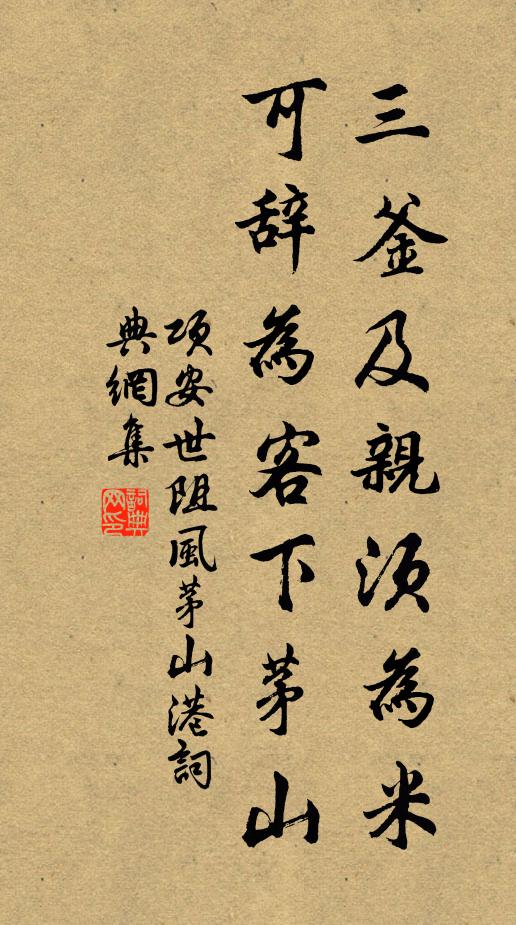 三釜及親須為米
可辞為客下茅山
项安世阻風茅山港詞
典網集
詞典
网印